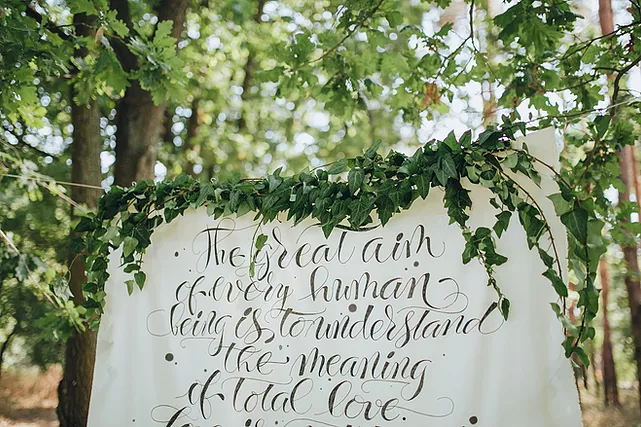 The great aim
of every human
being is, to understand
the meaning
of total love.